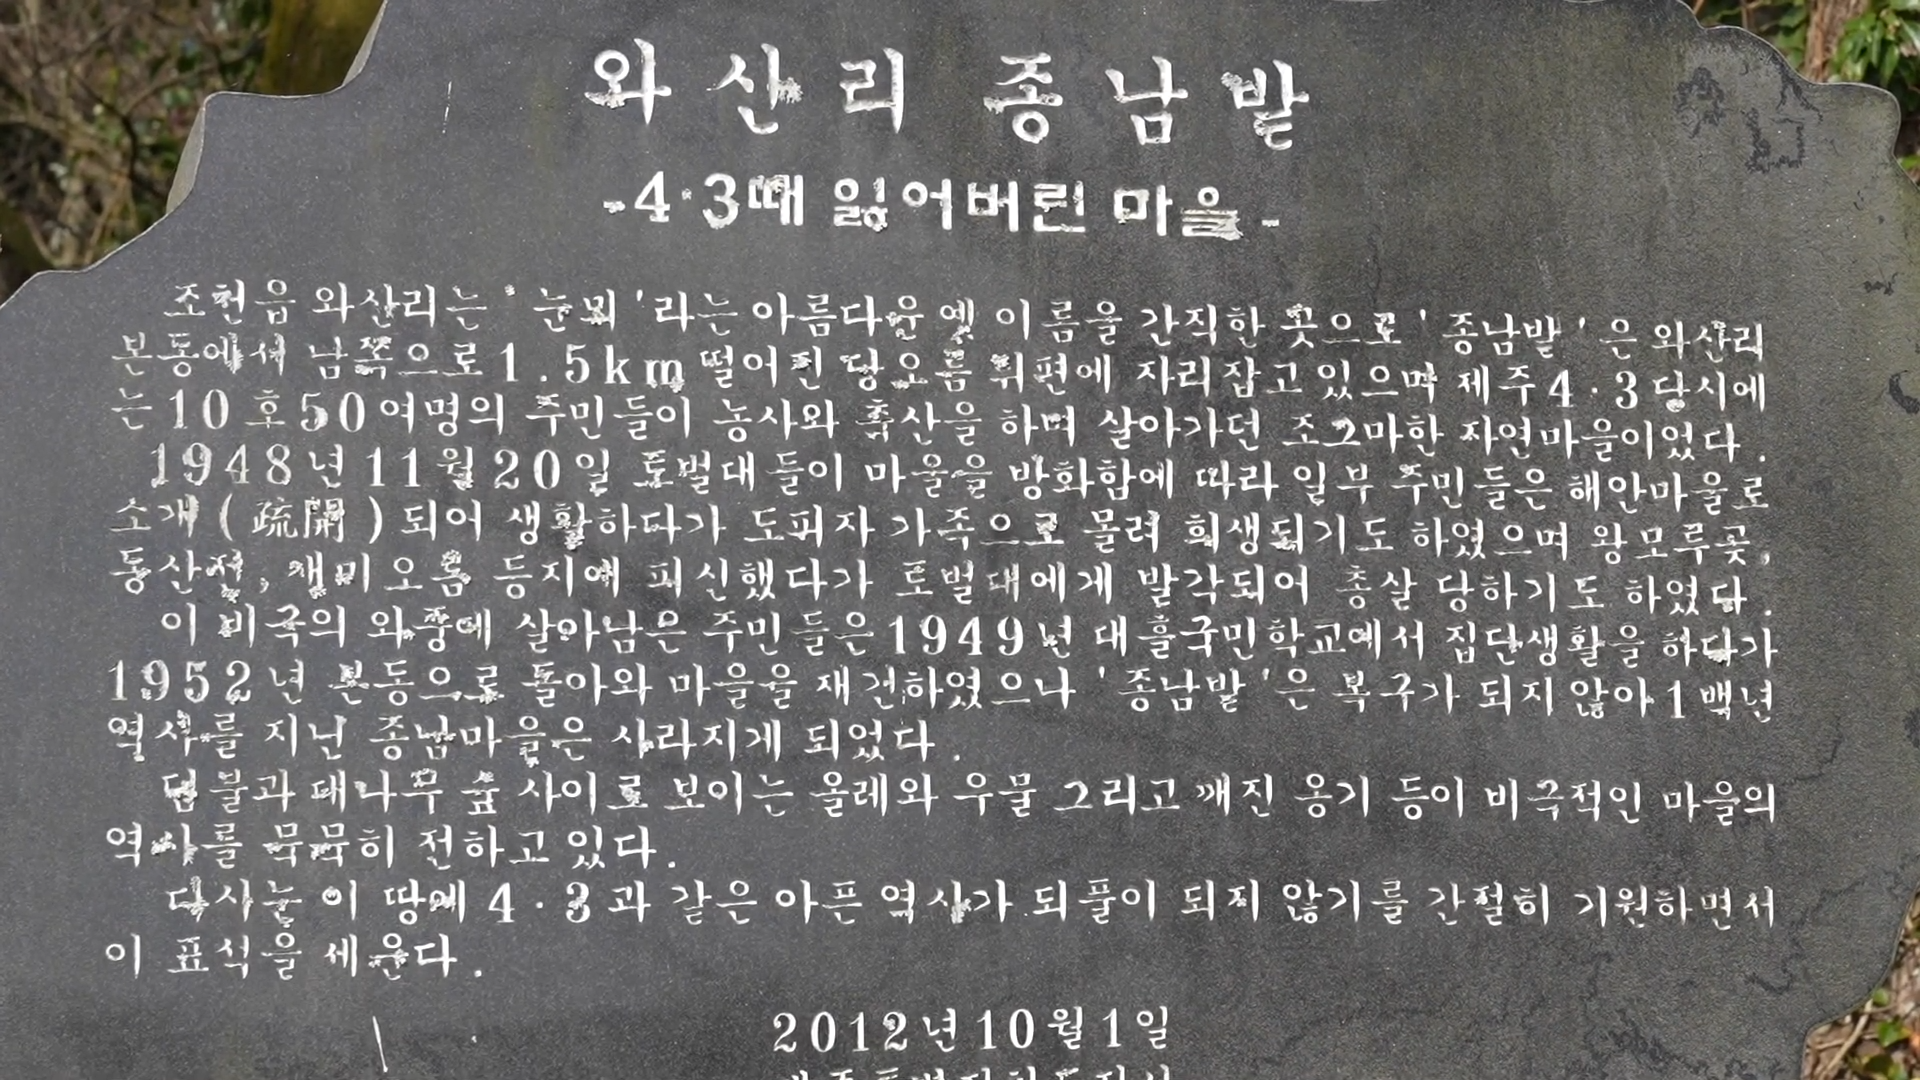 와산리 종남밭
-4·3때 잃어버린 마을-
조천읍 와산리는 '눈뫼'라는 아름다운 옛 이름을 간직한 곳으로 '종남밭'은 와산리
본동에서 남쪽으로 1.5km 떨어진 당오름 뒤편에 자리잡고 있으며 제주4·3당시에
는 10호 50여명의 주민들이 농사와 축산을 하며 살아가던 조그마한 자연마을이었다.
1948년 11월 20일 토벌대들이 마을을 방화함에 따라 일부 주민들은 해안마을로
소개(疏開)되어 생활하다가 도피자 가족으로 몰려 희생되기도 하였으며 왕모루곶,
동산전, 괭미오름 등지에 피신했다가 토벌대에게 발각되어 총살 당하기도 하였다.
이 비극의 와중에 살아남은 주민들은 1949년 대흘국민학교에서 집단생활을 하다가
1952년 본동으로 돌아와 마을을 재건하였으나 '종남밭'은 복구가 되지 않아 1백년
역사를 지닌 종남마을은 사라지게 되었다.
덤불과 대나무 숲 사이로 보이는 올레와 우물 그리고 깨진 옹기 등이 비극적인 마을의
역사를 묵묵히 전하고 있다.
다시는 이 땅에 4·3과 같은 아픈 역사가 되풀이 되지 않기를 간절히 기원하면서
이 표석을 세운다.
2012년 10월 1일